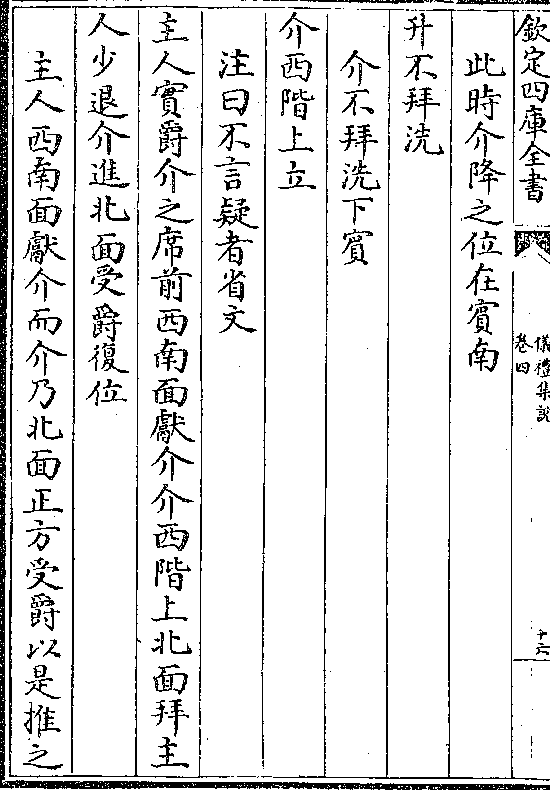 欽定四庫全書
儀禮集說
卷四
十六
此時介降之位在賓南
升不拜洗
介不拜洗下賓
介西階上立
注曰不言疑者省文
主人實爵介之席前西南面獻介介西階上北面拜主
人少退介進北面受爵復位
主人西南面獻介而介乃北面正方受爵以是推之